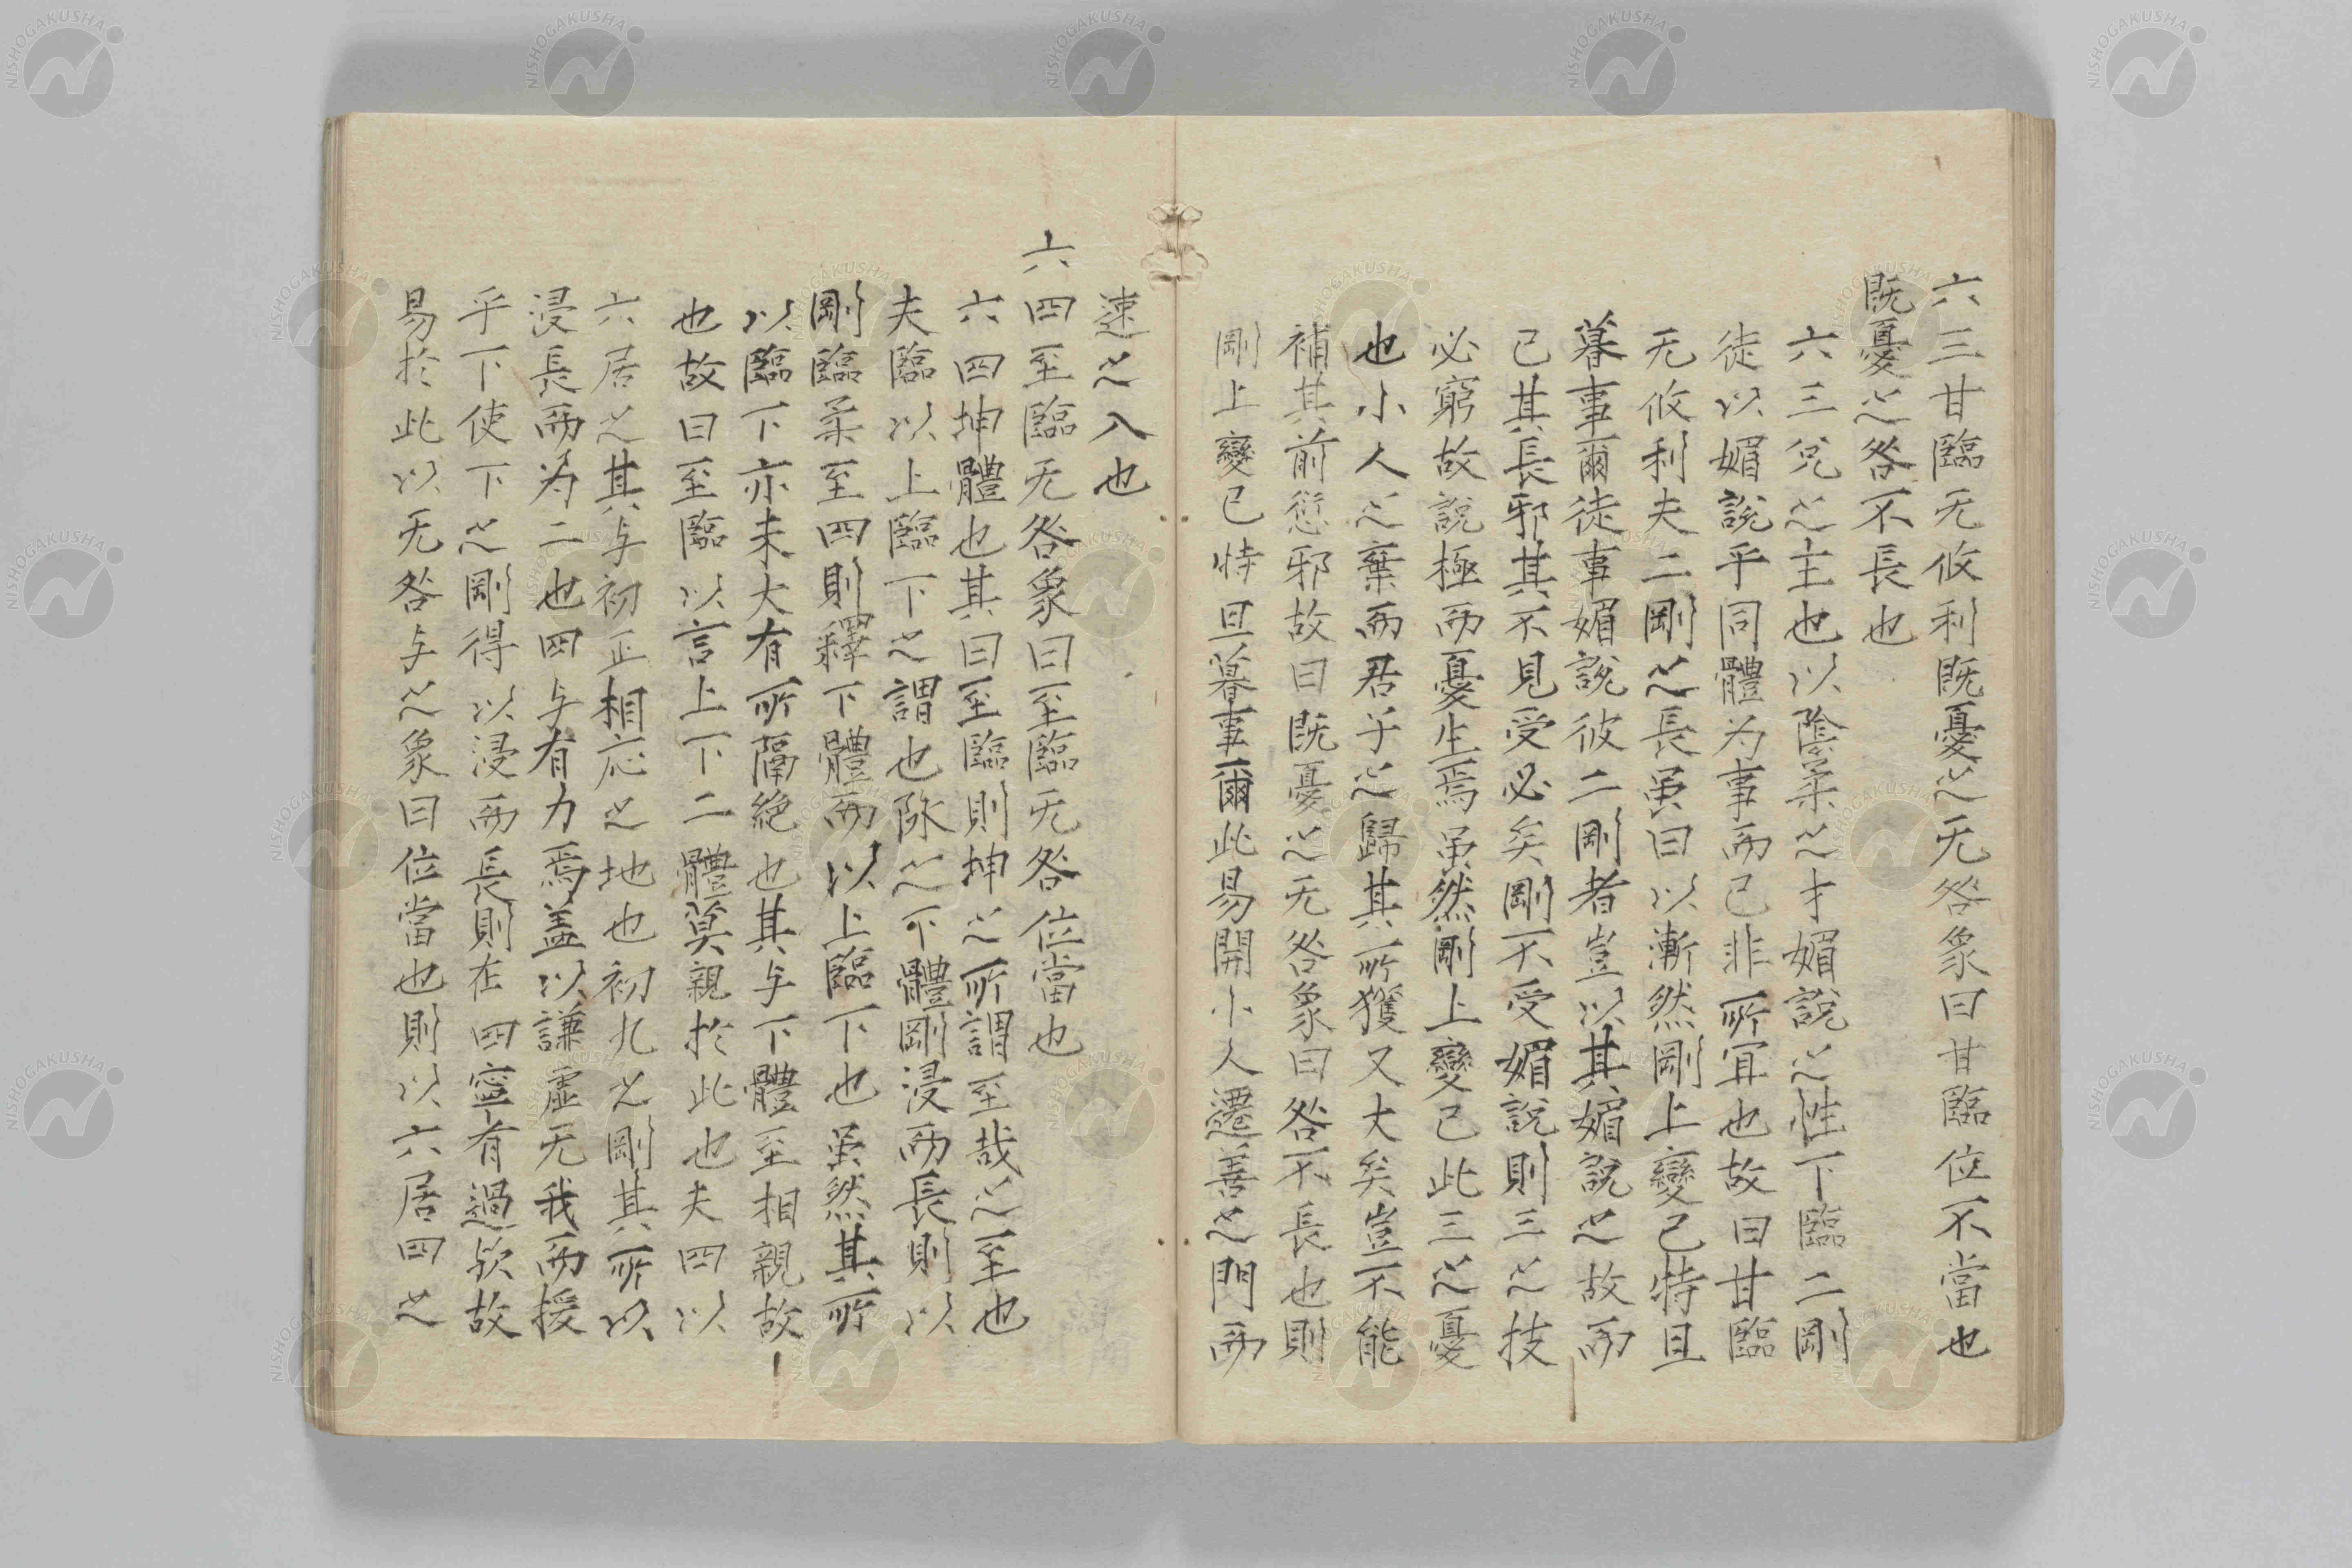 六三甘臨无攸利既憂之无咎象曰甘臨位不當也
既憂之咎不長也
六三兌之主也以陰柔之才媚說之性下臨二剛
徒以媚說乎同體为事而已非所宜也故曰甘臨
无攸利夫二剛之長虽曰以漸然剛上變已特且
暮事爾徒事媚說彼二剛者豈以其媚說之故而
已其長邪其不見受必矣剛不受媚說則三之技
必窮故說極而憂生焉虽然剛上變已此三之憂
也小人之棄而君子之歸其所獲又大矣豈不能
補其前愆邪故曰既憂之无咎象曰咎不長也則
剛上變已特旦暮事爾此易開小人遷善之門而
速之入也
六四至臨无咎象曰至臨无咎位當也
六四坤體也其曰至臨則坤之所謂至哉之至也
夫臨以上臨下之謂也除之下體剛浸而長則以
剛臨柔至四則釋下體而以上臨下也虽然其所
以臨下亦未大有所隔絶也其与下體至相親故
也故曰至臨以言上下二體莫親於此也夫四以
六居之其与初正相应之地也初九之剛其所以
浸長而为二也四与有力焉盖以謙虛无我而援
乎下使下之剛得以浸而長則在四寧有過欤故
易於此以无咎与之象曰位當也則以六居四之